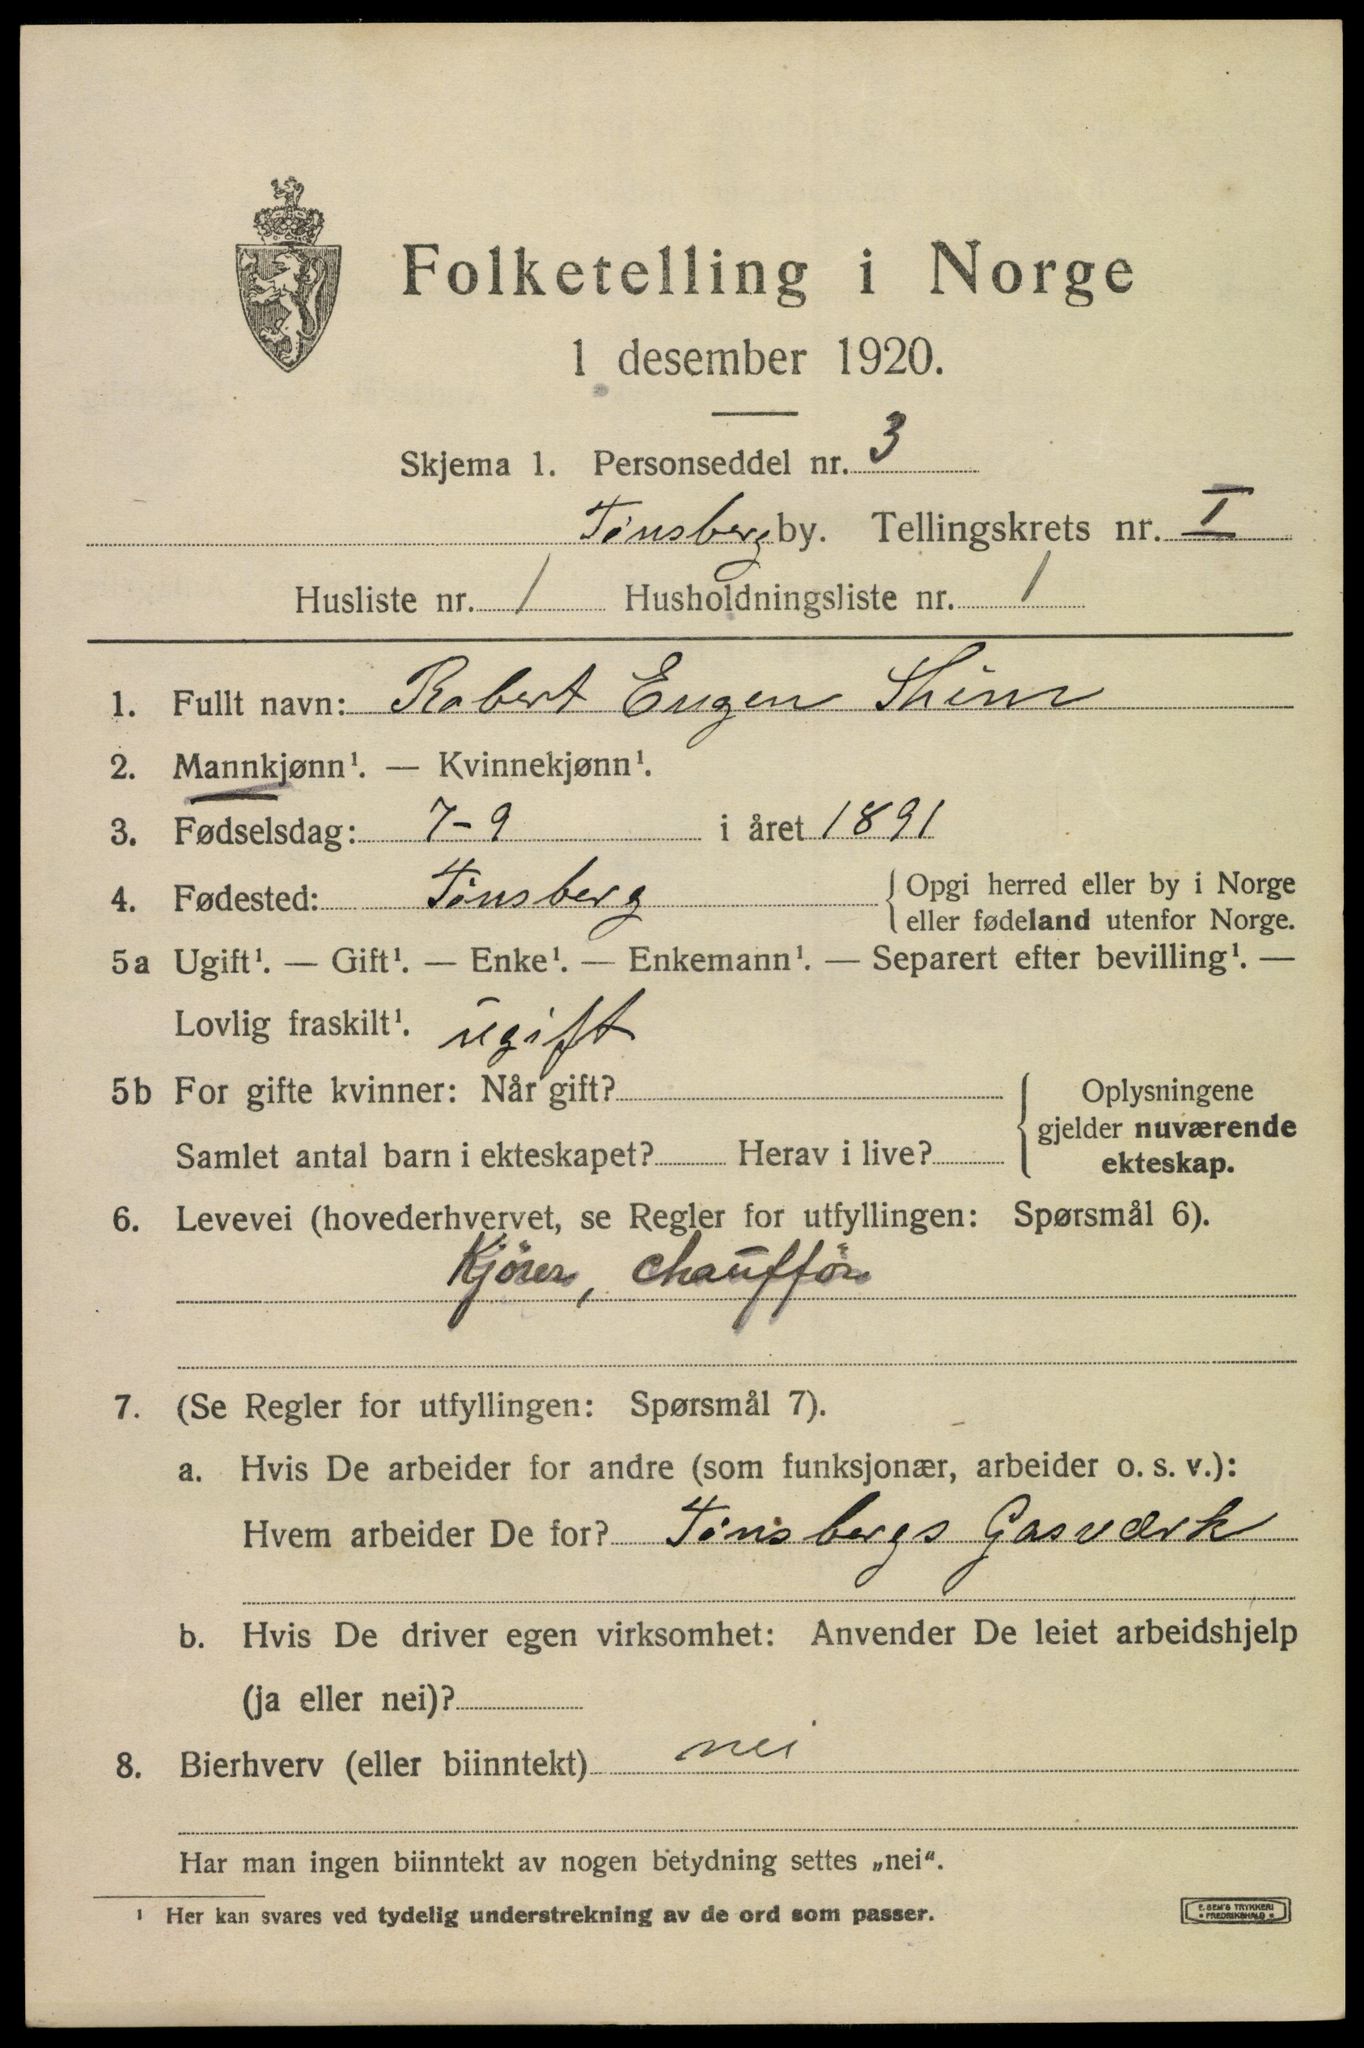 Folketelling i Norge
1 desember 1920.
Skjema 1. Personseddel nr. 3
Tønsberg by. Tellingskrets nr. I
Husliste nr. 1 Husholdningsliste nr. 1
1. Fullt navn: Robert Eugen
2. Mannkjønn¹. — Kvinnekjønn¹.
3. Fødselsdag: 7-9 i året 1891
4. Fødested: Tønsberg { Opgi herred eller by i Norge
eller fødeland utenfor Norge.
5a Ugift¹. — Gift¹. — Enke¹. — Enkemann¹. — Separert efter bevilling¹. —
Lovlig fraskilt¹. ugift
5b For gifte kvinner: Når gift? { Oplysningene
gjelder nuværende
Samlet antal barn i ekteskapet? Herav i live? ekteskap.
6. Levevei (hovederhvervet, se Regler for utfyllingen: Spørsmål 6).
Kjører, chauffør
7. (Se Regler for utfyllingen: Spørsmål 7).
a. Hvis De arbeider for andre (som funksjonær, arbeider o. s. v.):
Hvem arbeider De for? Tønsbergs Gasværk
b. Hvis De driver egen virksomhet: Anvender De leiet arbeidshjelp
(ja eller nei)?
8. Bierhverv (eller biinntekt) nei
Har man ingen biinntekt av nogen betydning settes „nei“.
¹ Her kan svares ved tydelig understrekning av de ord som passer.
E. SEM'S TRYKKERI
• FREDRIKSHALD •